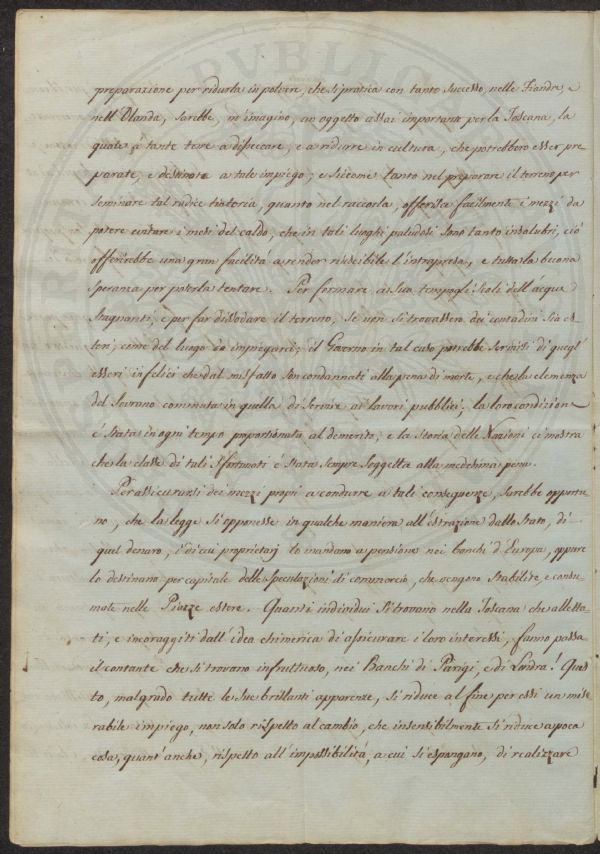 preparazione per ridurla in polvere, che si pratica con tanto successo, nelle Fiandre, e
nell'Olanda, sarebbe, m'imagino, un oggetto assai importante per la Toscana, la
quale, à tante terre a disseccare, e a ridurre in cultura, che potrebbero esser pre
parate, e destinate a tale impiego; e siccome tanto nel preparare il terreno per
seminare tal radice tintoria, quanto nel raccorla, offerisce facilmente i mezzi da
potere evitare i mesi del caldo, che in tali luoghi paludosi sono tanto insalubri, ciò
offerirebbe una gran facilità a render riuscibile l'intrapresa, e tutta la buona
speranza per poterla tentare. Per formare a suo tempo gli scoli dell'acque
stagnanti, e per far dissodare il terreno, se non si trovassero dei contadini sia es
teri, come del luogo da impiegarci; il Governo in tal caso potrebbe servirsi di quegl'
esseri infelici che dal misfatto son condannati alla pena di morte, e che la clemenza
del Sovrano commuta in quella di servire ai lavori pubblici. la loro condizione
é stata in ogni tempo proporzionata al demerito; e la Storia delle Nazioni ci mostra
che la classe di tali sfortunati é stata sempre soggetta alla medesima pena.
Per assicurarsi dei mezzi proprj a condurre a tali conseguenze, sarebbe opportu
no, che la legge si opponesse in qualche maniera all'estrazione dallo Stato, di
quel denaro, i di cui proprietarj lo mandano a pensione nei banchi d'Europa, oppure
lo destinano per capitale delle speculazioni di commercio, che vengono stabilite, e consu
mate nelle Piazze estere. Quanti individui si trovano nella Toscana che alletta
ti, e incoraggiti dall'idea chimerica di assicurare i loro interessi, fanno passa
il contante che si trovano infruttuoso, nei Banchi di Parigi, e di Londra! Ques
to, malgrado tutte le sue brillanti apparenze, si riduce al fine per essi un mise
rabile impiego, non solo rispetto al cambio, che insensibilmente si riduce a poca
cosa, quant'anche, rispetto all'impossibilità, a cui si espongano, di realizzare